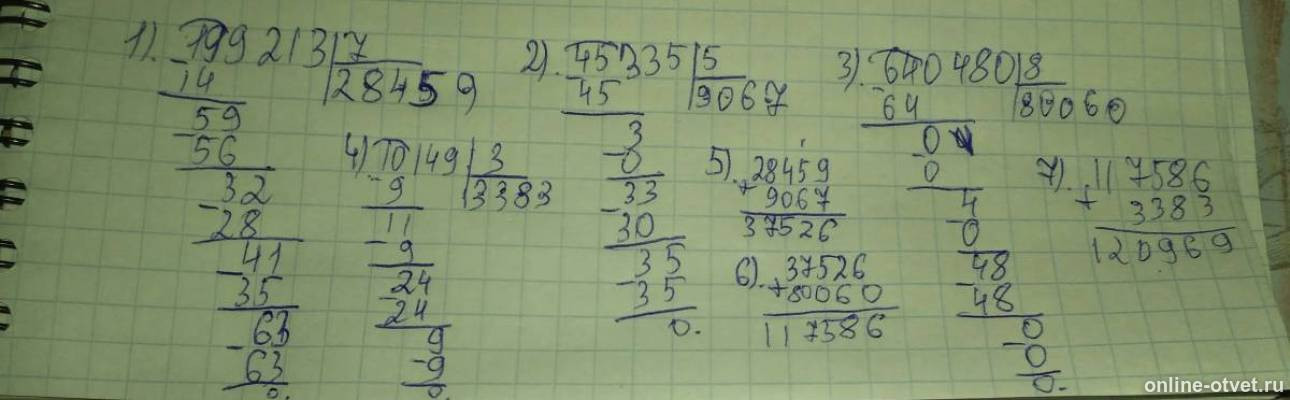 1). 199213 | 7
-14 | 28459
59
-56
32
-28
41
-35
63
-63
0.
2). 45335 | 5
-45 | 9067
3
-0
33
-30
35
-35
0.
3). 640480 | 8
-64 | 80060
0
-0
4
-0
48
-48
0
-0
0.
4) 10149 | 3
-9 | 3383
11
-9
24
-24
9
-9
0.
5). 28459
+ 9067
37526
6). 37526
+80060
117586
7). 117586
+ 3383
120969
online-otvet.ru